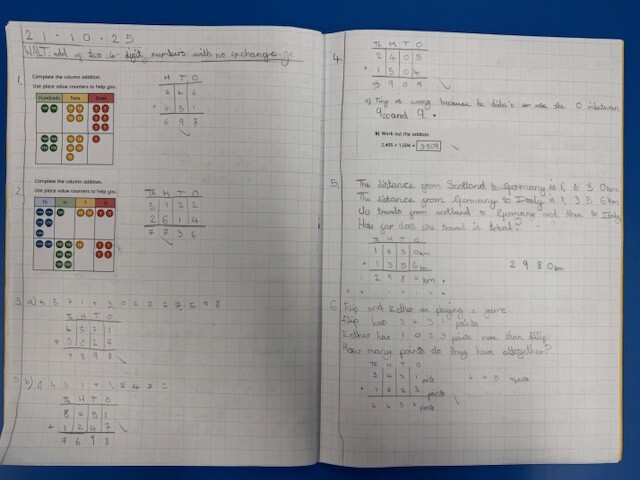 21.10.25
WALT: add of two 4-digit numbers with no exchange
1.
Complete the column addition.
Use place value counters to help you.
Hundreds Tens Ones
H T O
+ 4 5 1
6 9 7
2.
Complete the column addition.
Use place value counters to help you.
Th H T O
Th H T O
5 1 2 2
2 6 1 4
7 7 3 6
3. a)
Th H T O
4 5 7 1
7 5 9 8
3. b)
Th H T O
+ 1 2 4 7
9 6 9 8
4.
Th H T O
2 4 0 5
+ 1 5 0 4
3 9 0 9
a) Tiny is wrong because he didn't use the 0 inbetween
900 and 9.
b) Work out the addition.
2,405 + 1,504 = 3909
5.
The distance from Scotland to Germany is 1,630km
The distance from Germany to Italy is 1,356km
Jo travels from scotland to Germany and then to Italy
How far does she travel in total?
Th H T O
+ 1 3 5 6km
2 9 8 0km
2980km
6. Filip and Esther are playing a game.
Filip has 3431 points
Esther has 1023 points more than Filip
How many points do they have altogether?
Th H T O
3 4 3 1
+ 1 0 2 3 points
points